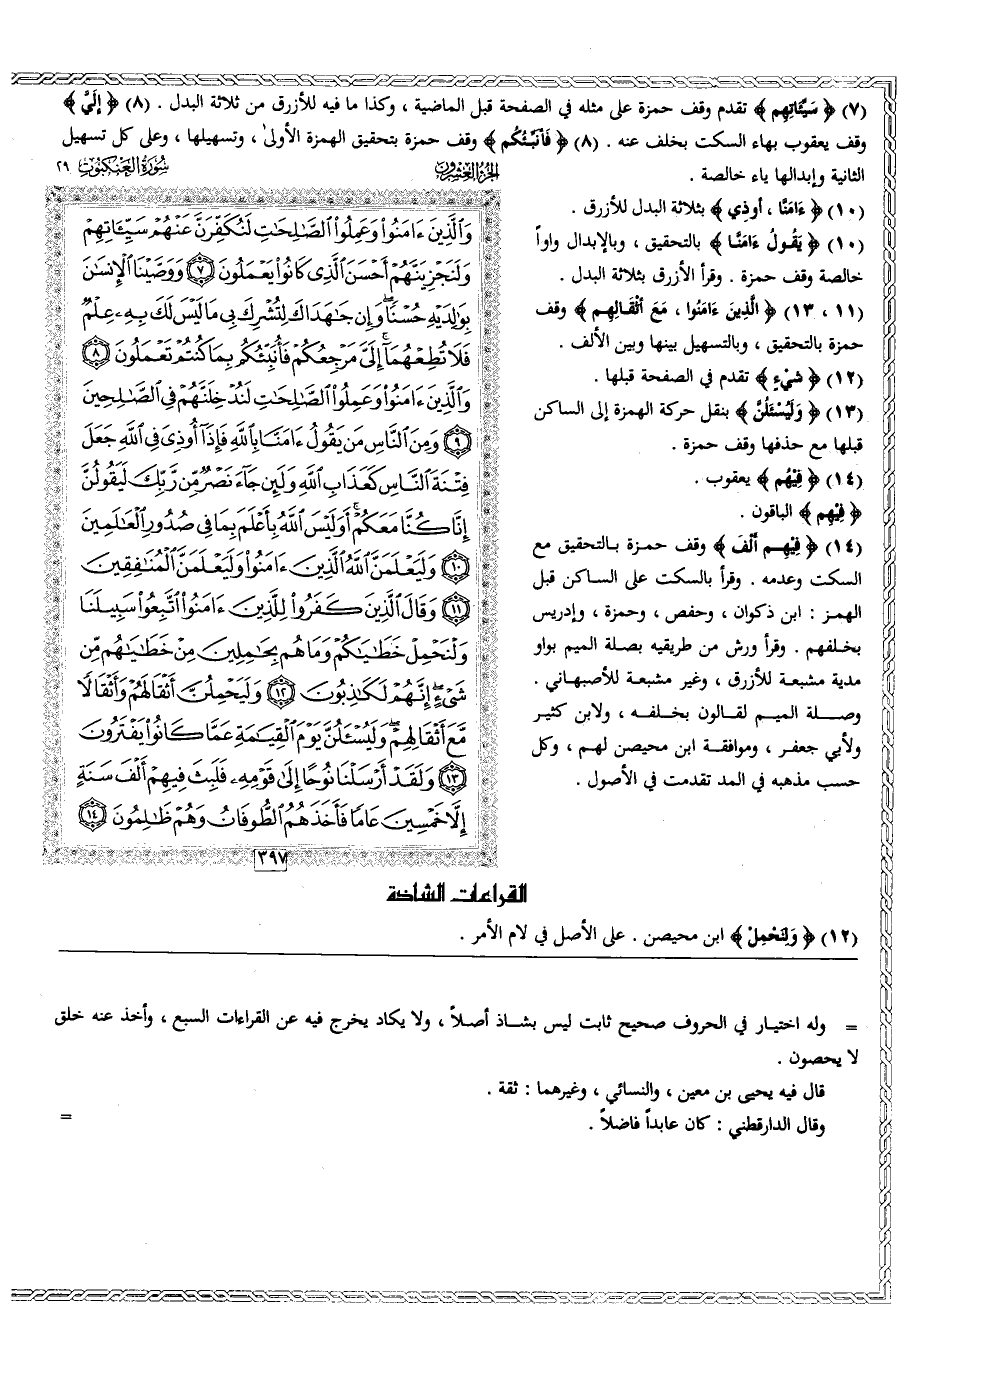 (٧) ﴿ سَيِّئَاتِهِم ﴾ تقدم وقف حمزة على مثله في الصفحة قبل الماضية ، وكذا ما فيه للأزرق من ثلاثة البدل . (٨) ﴿ إِلَيَّ ﴾
وقف يعقوب بهاء السكت بخلف عنه . (٨) ﴿ فَأُنَبِّئُكُم ﴾ وقف حمزة بتحقيق الهمزة الأولى ، وتسهيلها ، وعلى كل تسهيل
الثانية وإبدالها ياء خالصة .
(١٠) ﴿ ءَامَنَّا ، أُوذِيَ ﴾ بثلاثة البدل للأزرق .
(١٠) ﴿ يَقُولُ ءَامَنَّا ﴾ بالتحقيق ، وبالإبدال واواً
خالصة وقف حمزة . وقرأ الأزرق بثلاثة البدل .
(١١ ، ١٣) ﴿ الَّذِينَ ءَامَنُوا ، مَعَ أَثْقَالِهِم ﴾ وقف
حمزة بالتحقيق ، وبالتسهيل بينها وبين الألف .
(١٢) ﴿ شَيْءٍ ﴾ تقدم في الصفحة قبلها .
(١٣) ﴿ وَلَيُسْئَلُنَّ ﴾ بنقل حركة الهمزة إلى الساكن
قبلها مع حذفها وقف حمزة .
(١٤) ﴿ فِيْهُم ﴾ يعقوب .
﴿ فِيْهِم ﴾ الباقون .
(١٤) ﴿ فِيْهِم أَلْفَ ﴾ وقف حمزة بالتحقيق مع
السكت وعدمه . وقرأ بالسكت على الساكن قبل
الهمز : ابن ذكوان ، وحفص ، وحمزة ، وإدريس
بخلفهم . وقرأ ورش من طريقيه بصلة الميم بواو
مدية مشبعة للأزرق ، وغير مشبعة للأصبهاني .
وصلة الميم لقالون بخلفه ، ولابن كثير
ولأبي جعفر ، وموافقة ابن محيصن لهم ، وكل
حسب مذهبه في المد تقدمت في الأصول .
الجزء العشرون
سورة العنكبوت ٢٩
وَالَّذِينَ ءَامَنُوا وَعَمِلُوا الصَّالِحَاتِ لَنُكَفِّرَنَّ عَنْهُمْ سَيِّئَاتِهِمْ
وَلَنَجْزِيَنَّهُمْ أَحْسَنَ الَّذِي كَانُوا يَعْمَلُونَ ٧ وَوَصَّيْنَا الْإِنْسَانَ
بِوَالِدَيْهِ حُسْنًا وَإِن جَاهَدَاكَ لِتُشْرِكَ بِي مَا لَيْسَ لَكَ بِهِ عِلْمٌ
فَلَا تُطِعْهُمَا إِلَيَّ مَرْجِعُكُمْ فَأُنَبِّئُكُم بِمَا كُنتُمْ تَعْمَلُونَ ٨
وَالَّذِينَ ءَامَنُوا وَعَمِلُوا الصَّالِحَاتِ لَنُدْخِلَنَّهُمْ فِي الصَّالِحِينَ
٩ وَمِنَ النَّاسِ مَن يَقُولُ ءَامَنَّا بِاللَّهِ فَإِذَا أُوذِيَ فِي اللَّهِ جَعَلَ
فِتْنَةَ النَّاسِ كَعَذَابِ اللَّهِ وَلَئِن جَاءَ نَصْرٌ مِّن رَّبِّكَ لَيَقُولُنَّ
إِنَّا كُنَّا مَعَكُمْ أَوَلَيْسَ اللَّهُ بِأَعْلَمَ بِمَا فِي صُدُورِ الْعَالَمِينَ
١٠ وَلَيَعْلَمَنَّ اللَّهُ الَّذِينَ ءَامَنُوا وَلَيَعْلَمَنَّ الْمُنَافِقِينَ
١١ وَقَالَ الَّذِينَ كَفَرُوا لِلَّذِينَ ءَامَنُوا اتَّبِعُوا سَبِيلَنَا
وَلْنَحْمِلْ خَطَايَاكُمْ وَمَا هُم بِحَامِلِينَ مِنْ خَطَايَاهُم مِّن
شَيْءٍ إِنَّهُمْ لَكَاذِبُونَ ١٢ وَلَيَحْمِلُنَّ أَثْقَالَهُمْ وَأَثْقَالًا
مَّعَ أَثْقَالِهِمْ وَلَيُسْئَلُنَّ يَوْمَ الْقِيَامَةِ عَمَّا كَانُوا يَفْتَرُونَ
١٣ وَلَقَدْ أَرْسَلْنَا نُوحًا إِلَى قَوْمِهِ فَلَبِثَ فِيهِمْ أَلْفَ سَنَةٍ
إِلَّا خَمْسِينَ عَامًا فَأَخَذَهُمُ الطُّوفَانُ وَهُمْ ظَالِمُونَ ١٤
٣٩٧
القراءات الشاذة
(١٢) ﴿ وَلِنَحْمِلْ ﴾ ابن محيصن . على الأصل في لام الأمر .
= وله اختيار في الحروف صحيح ثابت ليس بشاذ أصلاً ، ولا يكاد يخرج فيه عن القراءات السبع ، وأخذ عنه خلق
لا يحصون .
قال فيه يحيى بن معين ، والنسائي ، وغيرهما : ثقة .
وقال الدارقطني : كان عابداً فاضلاً .
=